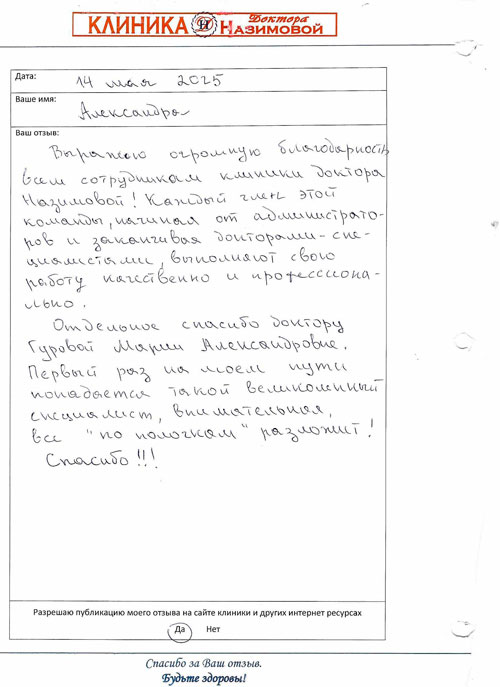 КЛИНИКА Н Доктора
НАЗИМОВОЙ
Дата: 14 мая 2025
Ваше имя:
Александра
Ваш отзыв:
Выражаю огромную благодарность
всем сотрудникам клиники доктора
Назимовой! Каждый член этой
команды, начиная от администрато-
ров и заканчивая докторами-спе-
циалистами, выполняют свою
работу качественно и профессиона-
льно.
Отдельное спасибо доктору
Гуровой Марии Александровне.
Первый раз на моем пути
попадается такой великолепный
специалист, внимательная,
все "по полочкам" разложит!
Спасибо!!!
Разрешаю публикацию моего отзыва на сайте клиники и других интернет ресурсах
Да Нет
Спасибо за Ваш отзыв.
Будьте здоровы!